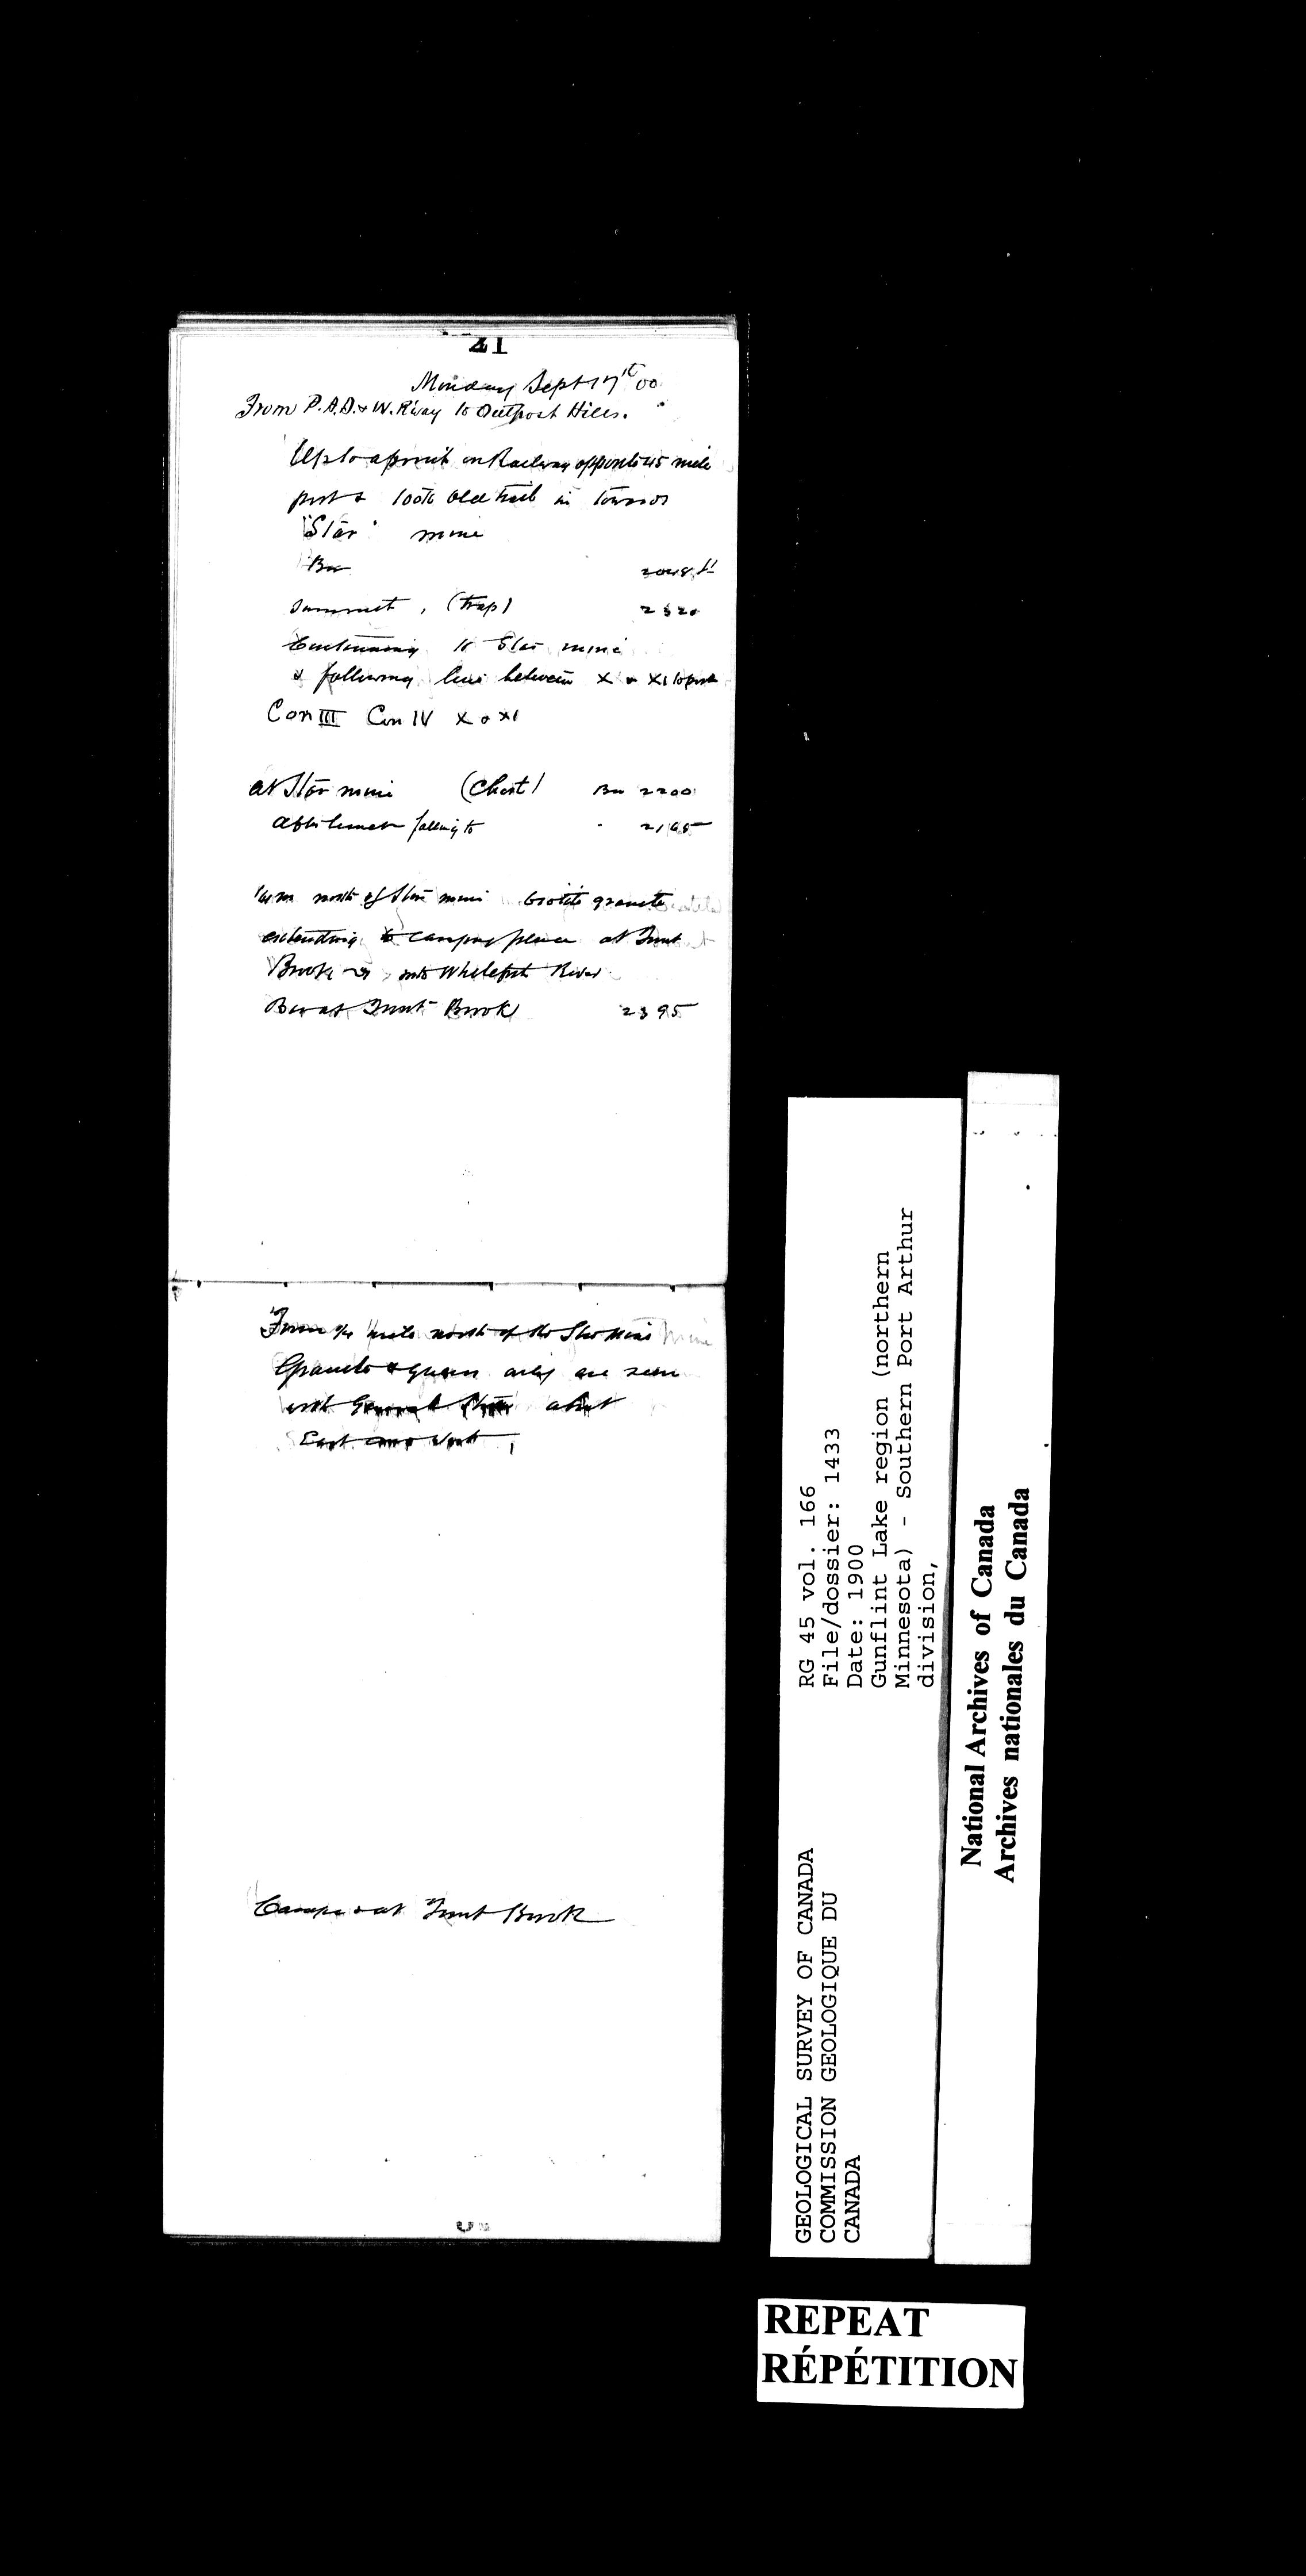 41
Monday Sept 17th 00
From P.A.D. & W. R'way to Outpost Hills.
Up to a point on Railway opposite 45 mile
post & took old trail in towards
"Star" mine
Bar 2048 ft
Summit, (trap) 2320
Continuing to Star mine
& following line between X & XI to post
Con III Con IV X & XI
at Star mine (Chert) Bar 2200
Afterwards falling to " 2165
1/4 m north of Star mine biotite granite
extending to camping place at Trout
Brook into Whitefish River
Bar at Trout Brook 2395
From 1/4 mile north of the Star Mine
Granite & gneiss only are seen
with General Strike about
East and West,
Camped at Trout Brook
RG 45 vol. 166
File/dossier: 1433
Date: 1900
Gunflint Lake region (northern
Minnesota) - Southern Port Arthur
division,
GEOLOGICAL SURVEY OF CANADA
COMMISSION GEOLOGIQUE DU
CANADA
National Archives of Canada
Archives nationales du Canada
REPEAT
RÉPÉTITION